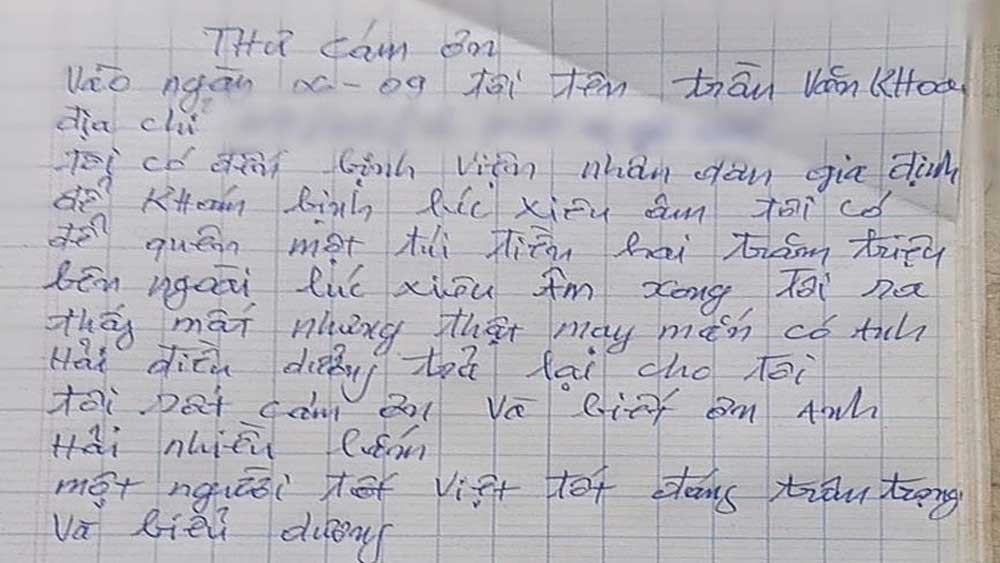 Thư cám ơn
Vào ngần x-09 tôi tên trần Văn KHoa
địa chỉ
tôi có đến bịnh viện nhân dân gia định
để KHám bịnh lúc xiêu âm tôi có
để quên một túi tiền hai trăm triệu
bên ngoài lúc xiêu Âm xong Tôi ra
thấy mất nhưng thật may mắn có Anh
Hải điều dưỡng trả lại cho Tôi
tôi rất cám ơn và biết ơn Anh
Hải nhiều lắm
một người tốt việt tốt đáng trân trọng
Và biểu dương